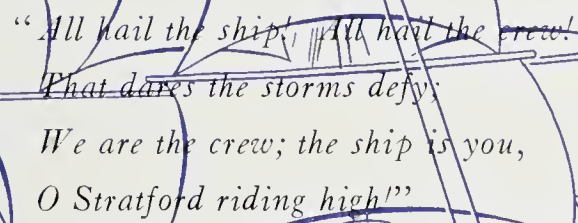 “All hail the ship! All hail the crew!
That dares the storms defy;
We are the crew; the ship is you,
O Stratford riding high!”